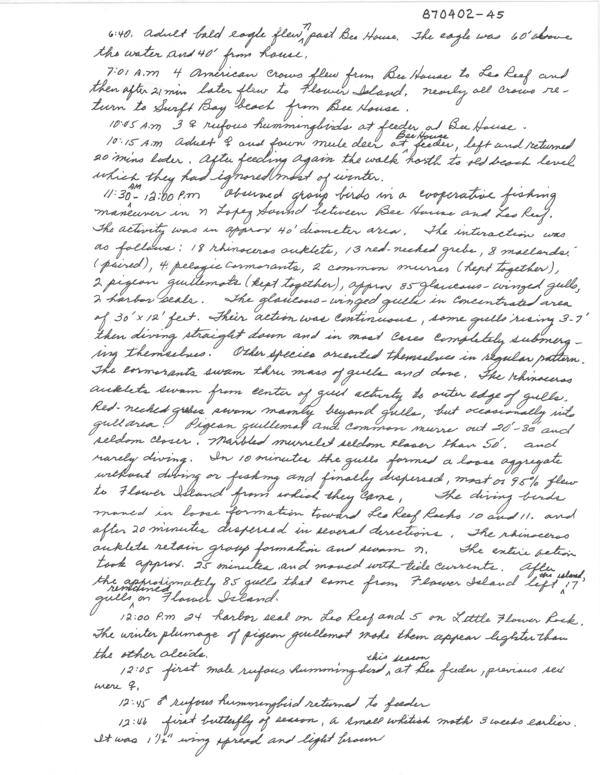 870402-45
6:40. Adult bald eagle flew n past Bee House. The eagle was 60' above
the water and 40' from house.
7:01 A.M 4 American crows flew from Bee House to Leo Reef and
then after 21 min later flew to Flower Island, nearly all crows re-
turn to Surft Bay beach from Bee House.
10:05 A.M 3 ♀ rufous hummingbirds at feeder at Bee House.
10:15 A.M Aduet ♀ and fawn mule deer at Bee House feeder, left and returned
20 mins later. After feeding again the walk north to old beach level
which they had ignored most of winter.
11:30 AM - 12:00 P.m Observed group birds in a cooperative fishing
maneuver in n Lopez Sound between Bee House and Leo Reef.
The activity was in approx 40' diameter area. The interaction was
as follows: 18 rhinoceros auklets, 13 red-necked grebe, 8 mallards
(paired), 4 pelagic cormorants, 2 common murres (kept together),
2 pigeon guillemots (kept together), approx 85 glaucous-winged gulls,
2 harbor seals. The glaucous-winged gulls in concentrated area
of 30' x 12' feet. Their action was continuous, some gulls rising 3-7'
then diving straight down and in most cases completely submerg-
ing themselves. Other species oriented themselves in regular pattern.
The cormorants swam thru mass of gulls and dove. The rhinoceros
auklets swam from center of gull activity to outer edge of gulls.
Red-necked grebes swam mainly beyond gulls, but occasionally into
gull area. Pigeon guillemot and common murre out 20'-30 and
seldom closer. Marbled murrelet seldom closer than 50'. and
rarely diving. In 10 minutes the gulls formed a loose aggregate
without diving or fishing and finally dispersed, most or 95% flew
to Flower Island from which they came, The diving birds
moved in loose formation toward Leo Reef Rocks 10 and 11. and
after 20 minutes dispersed in several directions. The rhinoceros
auklets retain group formation and swam n. The entire action
took approx. 25 minutes and moved with tide currents. After
the approximately 85 gulls that came from Flower Island left the island, 17
gulls remained on Flower Island.
12:00 P.M 24 harbor seal on Leo Reef and 5 on Little Flower Rock.
The winter plumage of pigeon guillemot make them appear lighter than
the other alcids.
12:05 first male rufous hummingbird this season at Bee feeder, previous sex
were ♀.
12:45 ♂ rufous hummingbird returned to feeder
12:46 first butterfly of season, a small whitish moth 3 weeks earlier.
It was 1 1/2" wing spread and light brown